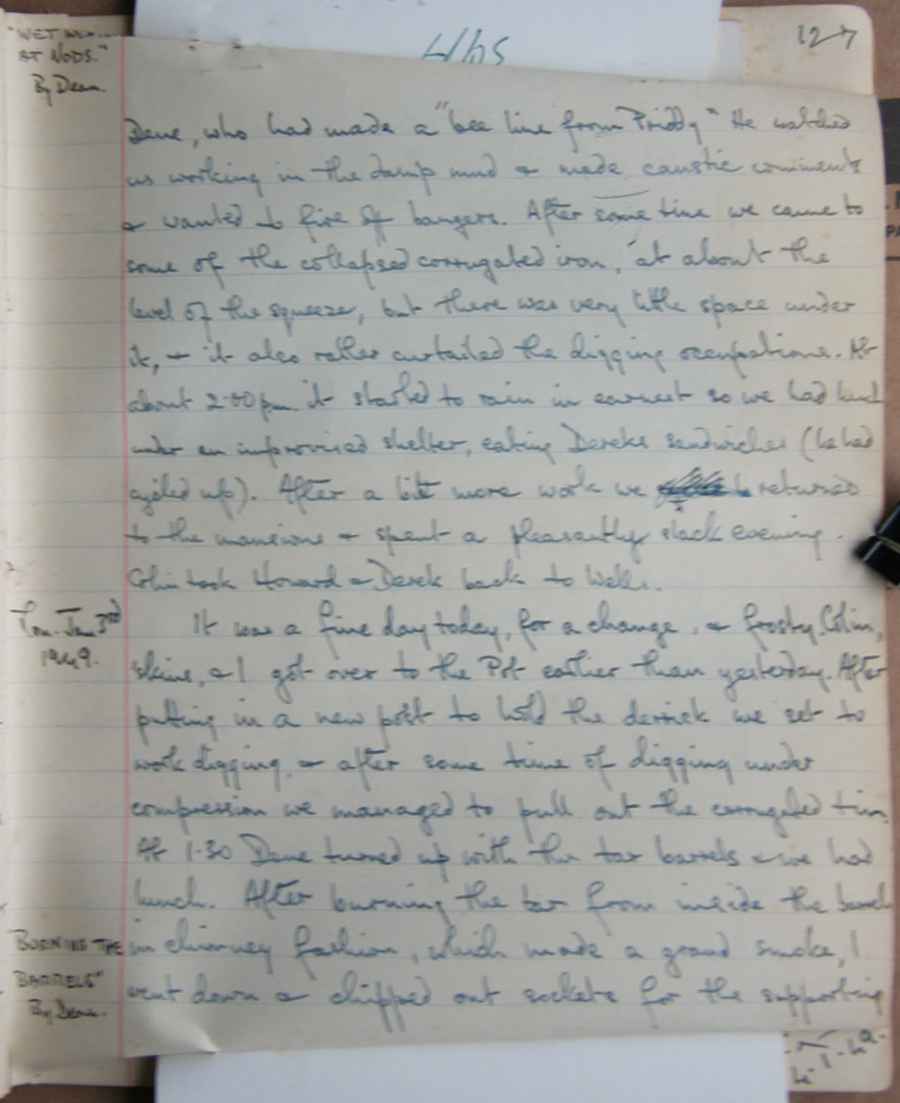 127
"WET
AT NODS."
By Dean.
Dane, who had made a "bee line from Priddy" He watched
us working in the damp mud & made caustic comments
& wanted to fire off bangers. After some time we came to
some of the collapsed corrugated iron, at about the
level of the squeeze, but there was very little space under
it, & it also rather curtailed the digging occupations. At
about 2.00 pm it started to rain in earnest so we had lunch
under an improvised shelter, eating Dereks sandwiches (he had
cycled up). After a bit more work we returned
to the mansions & spent a pleasantly slack evening.
Colin took Howard & Derek back to Wells.
Jan 3rd
1949.
It was a fine day today, for a change, & frosty. Colin,
& I got over to the Pot earlier than yesterday. After
putting in a new post to hold the derrick we set to
work digging, & after some time of digging under
compression we managed to pull out the corrugated tin.
At 1.30 Dane turned up with the tar barrels & we had
lunch. After burning the tar from inside the
BURNING THE
BARRELS"
By Dean.
in chimney fashion, which made a grand smoke, I
went down & chipped out sockets for the supporting